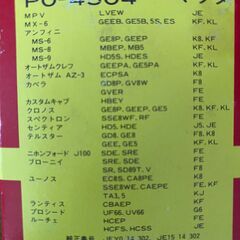 PU-4364 マツダ
MPV LVEW JE
MX-6 GEEB, GE5B, 5S, ES KF, KL
アンフィニ
MS-6 GE8P, GEEP KF, K8
MS-8 MBEP, MB5P KF, KL
MS-9 HD5S, HDES JE
オートザムクレフ GEEPA, GE5PA KF, KL
オートザム AZ-3 ECPSA K8
カペラ GD8P, GV8P F8
GVER, GVFW FE
カスタムキャブ HBEY FE
クロノス GE5P, GE8P, GEEP KF, K8, KL
スペクトロン SSE8WF, RF FE
センティア HD5S, HDES J5, JE
テルスター GD8, GD8J F8
GE8, GEE, GE5 KF, K8, KL
ニホンフォード J100 SDRE, SDE FE
ブローニイ SRE, 5RE FE
SR, SD89T, V F8
ユーノス EC8S, CA8PE K8
SSE8WE, CAEPE FE, KF
TA3, 5 KJ, KL
ランティス CBAEP KF
プロシード UF66, UV66 G6
ルーチェ HCEP JE
HCFS, HCSS JF, FE
純正番号 JEY0 14 302, JE15 14 302